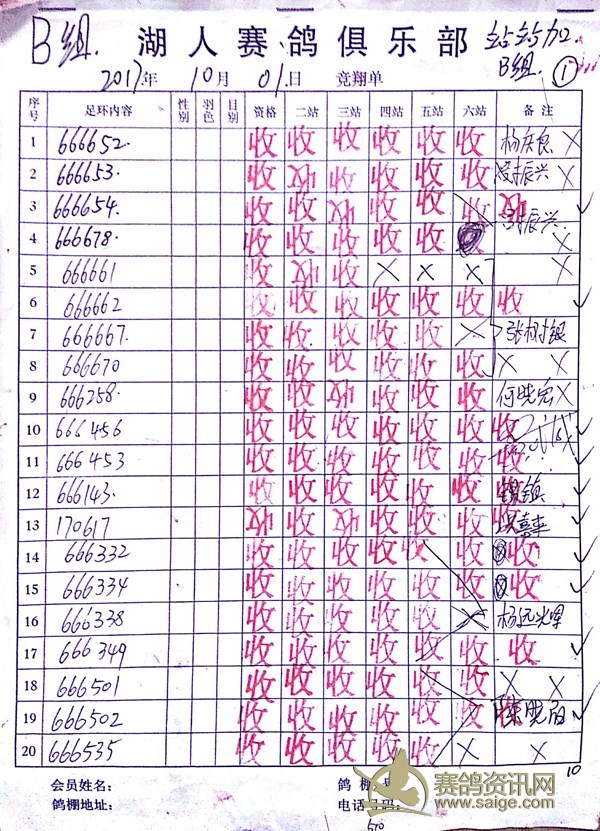 B组. 湖人赛鸽俱乐部 站站加
B组. ①
2017年 10月 01日 竞翔单
序号 足环内容 性别 羽色 目别 资格 二站 三站 四站 五站 六站 备注
1 666652. 收 收 收 收 收 收 杨庆良 X
2 666653. 收 收 收 收 收 收 振兴 X
3 666654. 收 收 收 收 收 收 收 ✓
4 666678. 收 收 收 收 收 振兴 X
5 666661 收 收 收 X X X X
6 666662 收 收 收 收 收 收 收 ✓
7 666667. 收 收 收 收 收 X 张树银
8 666670 收 收 收 收 收 收 X X
9 666258. 收 收 收 收 收 收 何晓宏 X
10 666456 收 收 收 收 收 收 收
11 666453 收 收 收 收 收 收 收 ✓
12 666143. 收 收 收 收 收 收 收 ✓
13 170617 收 收 收 收 收 收 收 ✓
14 666332 收 收 收 收 收 收 收 ✓
15 666334 收 收 收 收 收 收 收 ✓
16 666338 收 收 收 收 收 X 杨远光
17 666349 收 收 收 收 收 收 收 ✓
18 666501 收 收 收 收 收 收 X X
19 666502 收 收 收 收 收 收 收 陈晓 ✓
20 666535 收 收 收 收 收 X X
10
会员姓名: 鸽棚
鸽棚地址: 电话号码:
赛鸽资讯网
www.saige.com